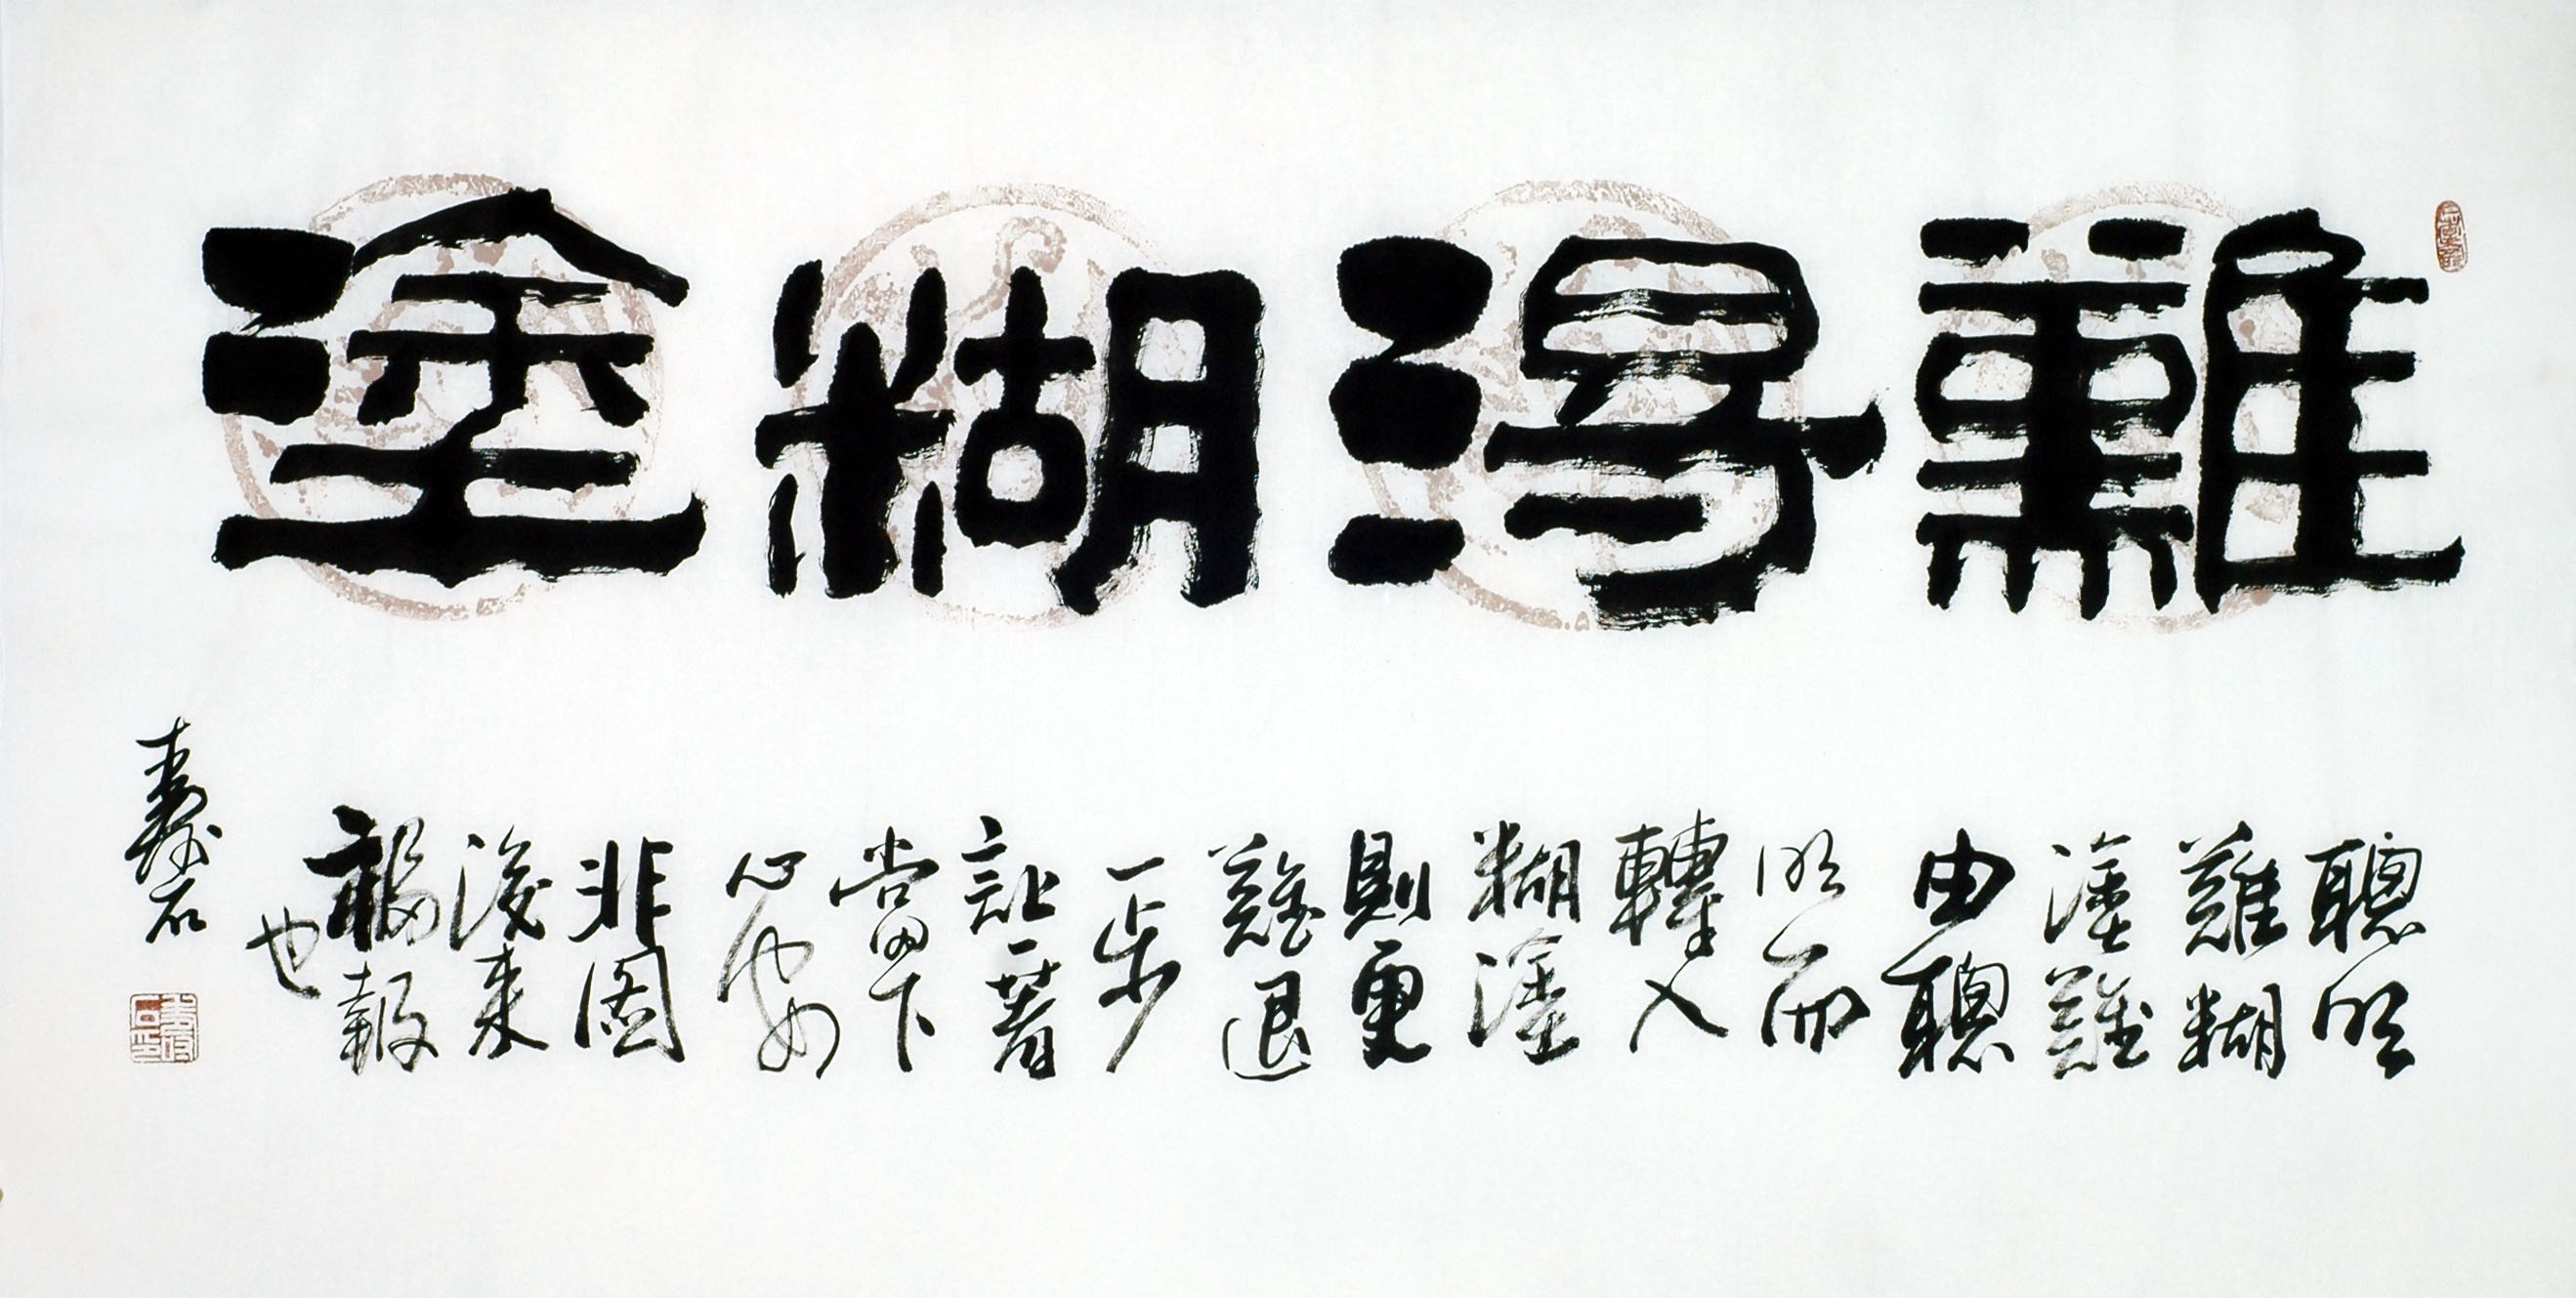 難得糊塗
聰明
難糊
塗難
由聰
明而
轉入
糊塗
則更
難退
一步
让一著
當下
心安
非圖
後來
福報
也
壽石